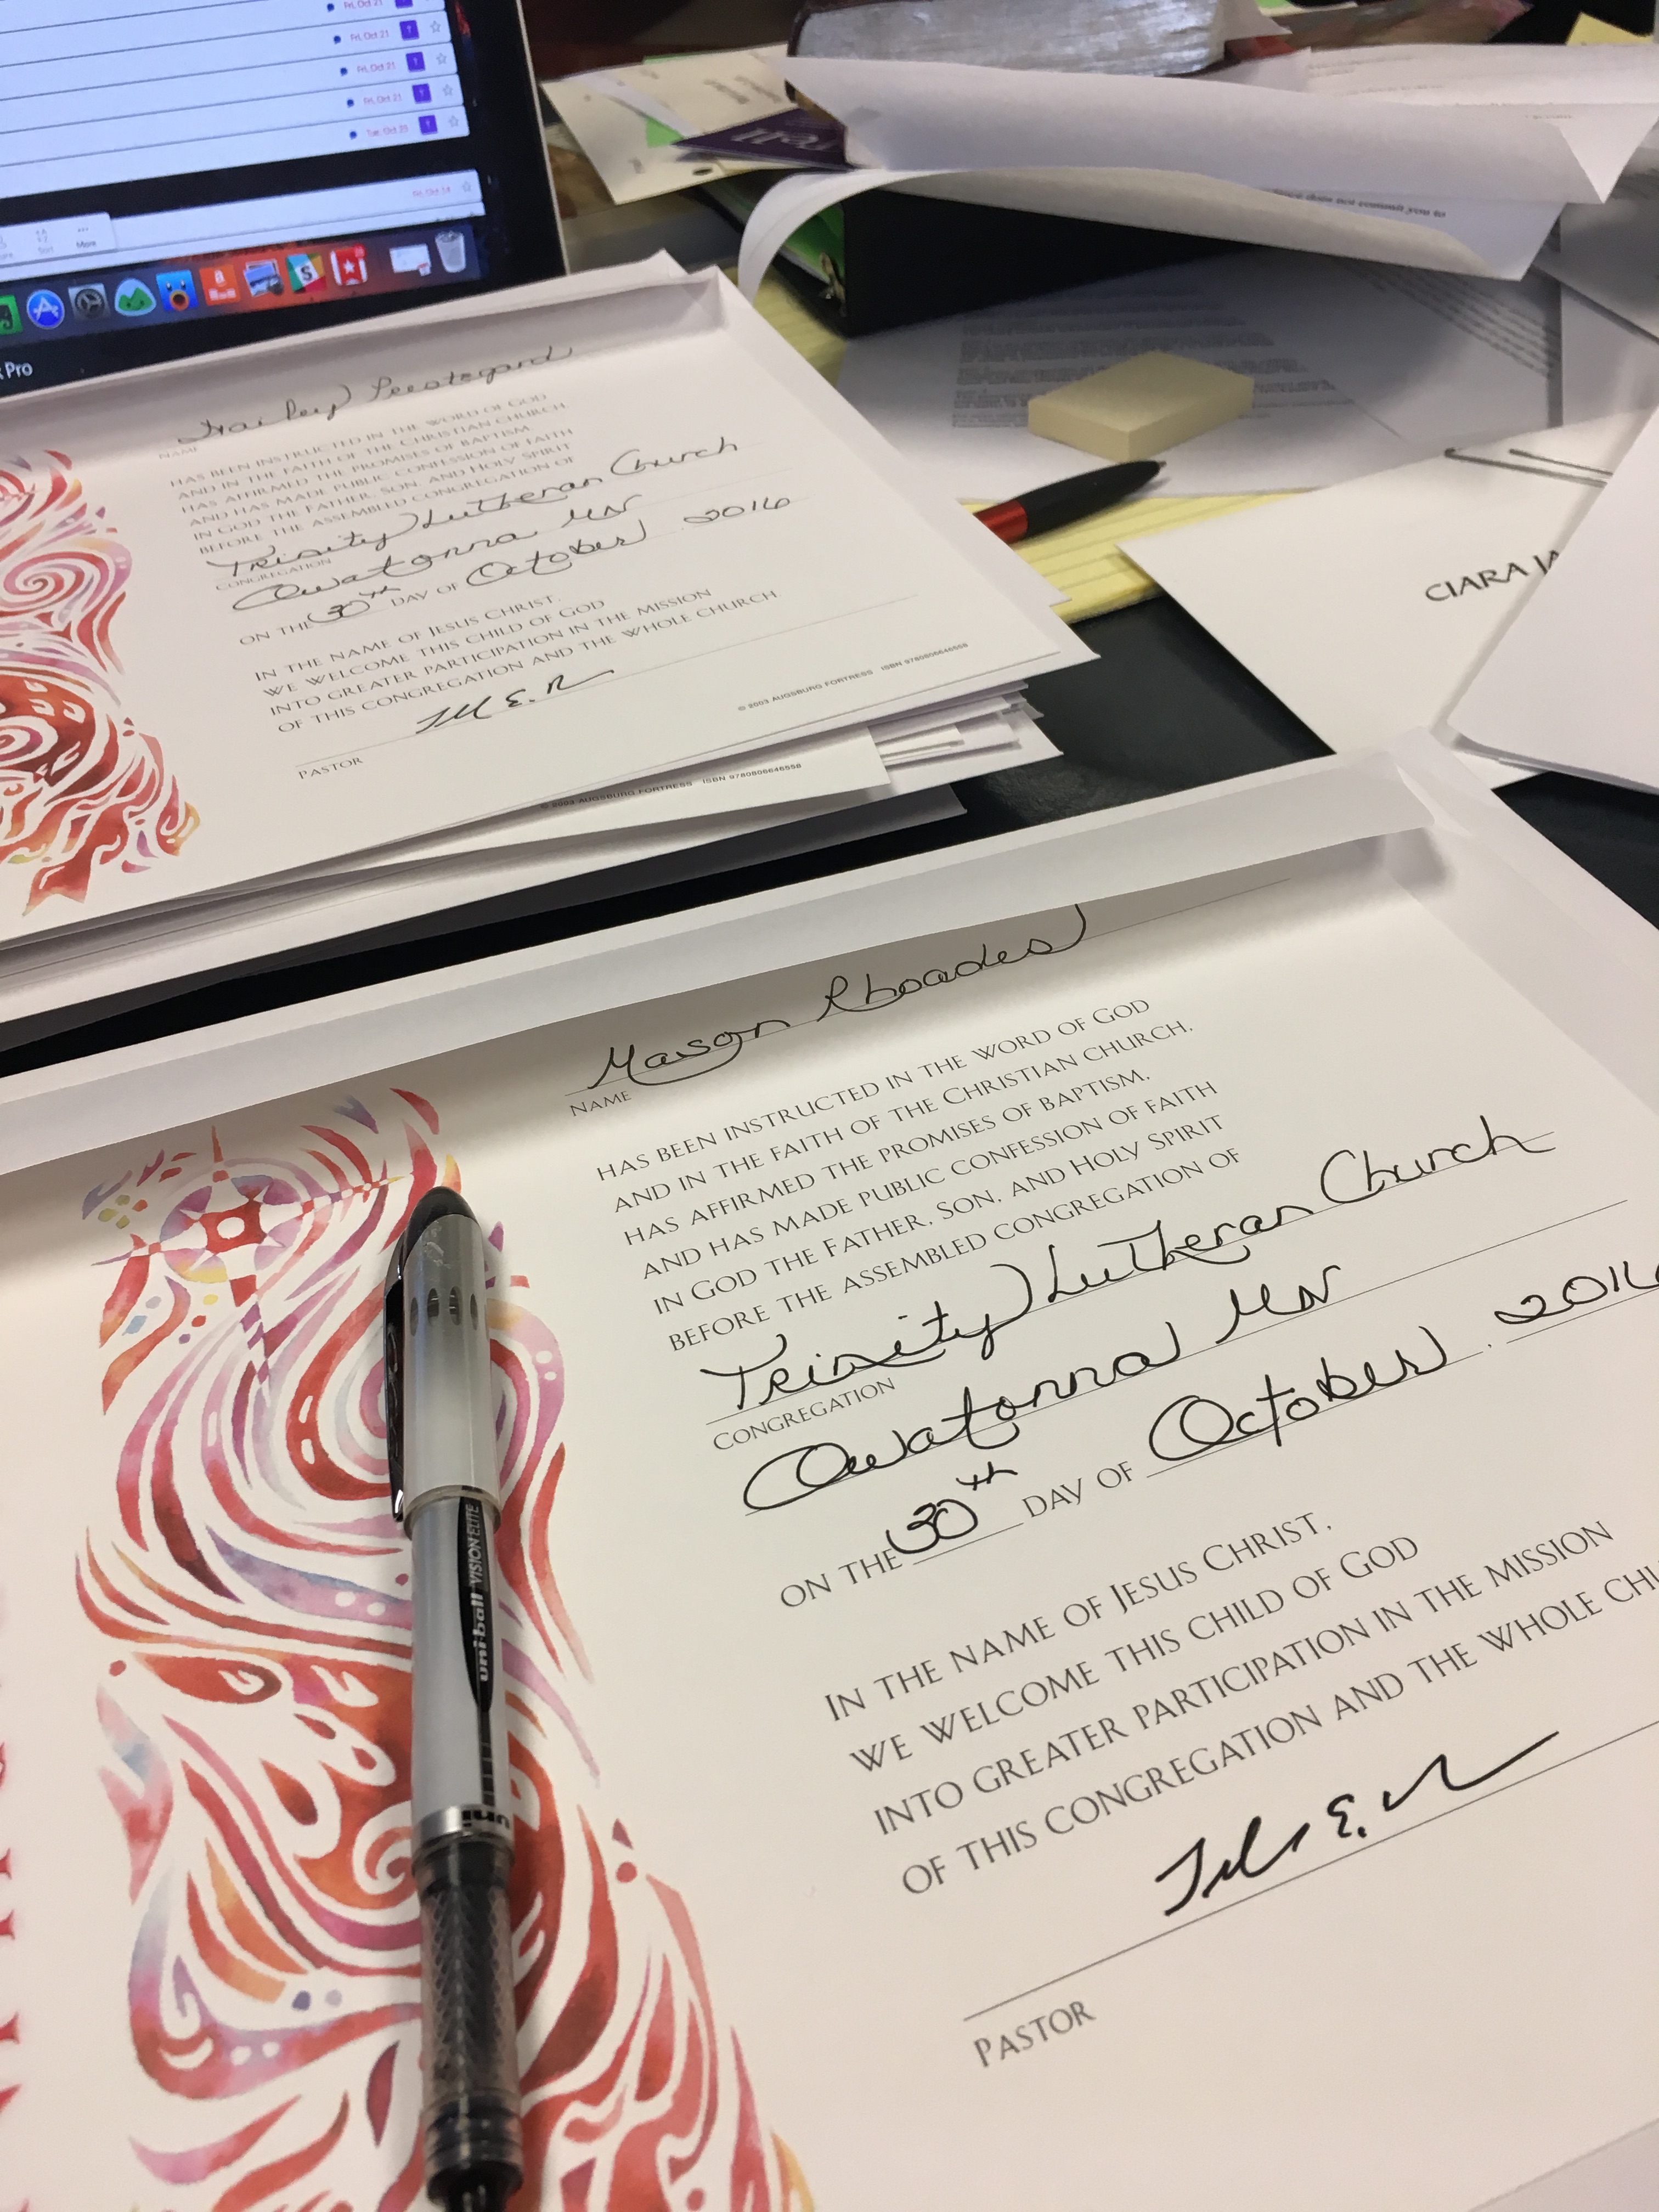 Fri, Oct 21
Fri, Oct 21
Fri, Oct 21
Fri, Oct 21
Tue, Oct 25
Fri, Oct 14
Sort
More
Pro
does not commit you to
CIARA JA
NAME
HAS BEEN INSTRUCTED IN THE WORD OF GOD
AND IN THE FAITH OF THE CHRISTIAN CHURCH,
HAS AFFIRMED THE PROMISES OF BAPTISM,
AND HAS MADE PUBLIC CONFESSION OF FAITH
IN GOD THE FATHER, SON, AND HOLY SPIRIT
BEFORE THE ASSEMBLED CONGREGATION OF
Trinity Lutheran Church
CONGREGATION
Owatonna MN
ON THE 30th DAY OF October, 2016
IN THE NAME OF JESUS CHRIST,
WE WELCOME THIS CHILD OF GOD
INTO GREATER PARTICIPATION IN THE MISSION
OF THIS CONGREGATION AND THE WHOLE CHURCH
PASTOR
© 2003 AUGSBURG FORTRESS ISBN 9780806646558
© 2003 AUGSBURG FORTRESS ISBN 9780806646558
Mason Rhoades
NAME
HAS BEEN INSTRUCTED IN THE WORD OF GOD
AND IN THE FAITH OF THE CHRISTIAN CHURCH,
HAS AFFIRMED THE PROMISES OF BAPTISM,
AND HAS MADE PUBLIC CONFESSION OF FAITH
IN GOD THE FATHER, SON, AND HOLY SPIRIT
BEFORE THE ASSEMBLED CONGREGATION OF
Trinity Lutheran Church
CONGREGATION
Owatonna MN
ON THE 30th DAY OF October, 2016
IN THE NAME OF JESUS CHRIST,
WE WELCOME THIS CHILD OF GOD
INTO GREATER PARTICIPATION IN THE MISSION
OF THIS CONGREGATION AND THE WHOLE CHU
PASTOR
uni-ball VISION ELITE
uni